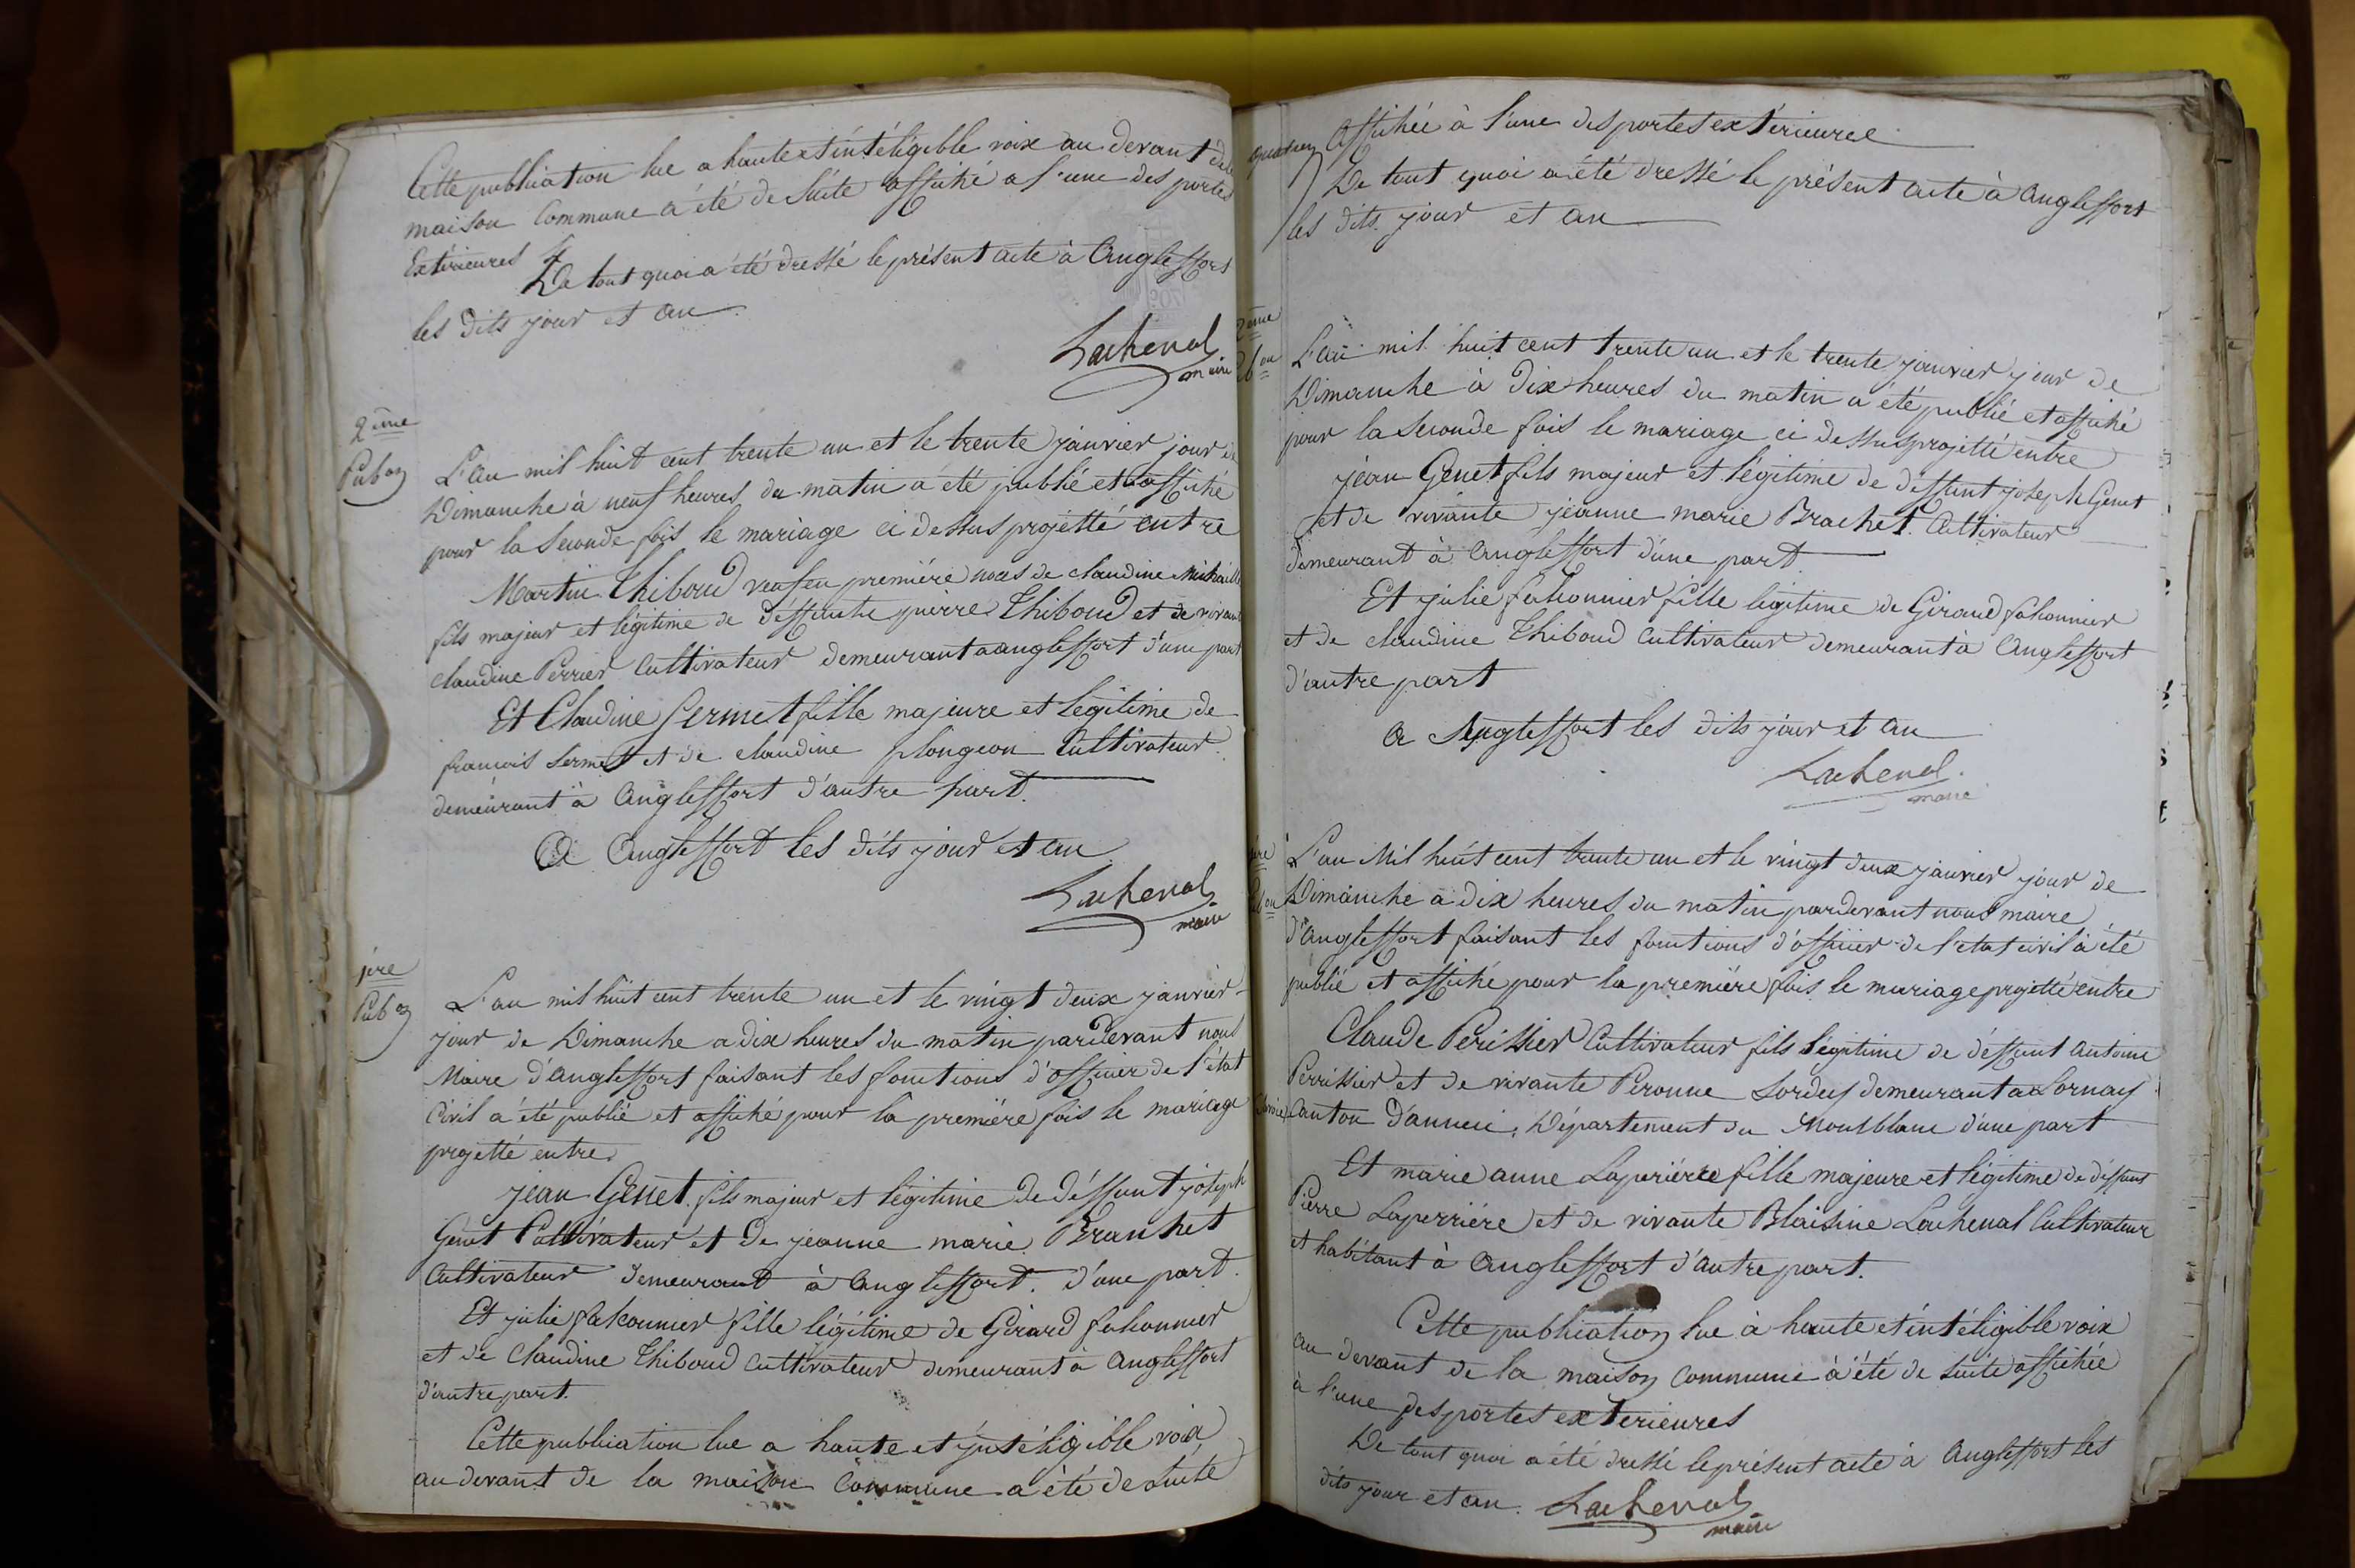 Cette publication lue a haute et intéligible voix au devant de la
maison Commune a été de suite affiché a l'une des portes
Extérieures
De tout quoi a été dressé le présent acte à Anglessort
les dits jour et an
Lachenal
maire
2ème
Pub on
L'an mil huit cent trente un et le trente janvier jour de
Dimanche à neuf heures du matin a été publié et affiché
pour la seconde fois le mariage ci dessus projetté entre
Martin Thiboud veuf en première noces de claudine Michaille
fils majeur et légitime de deffunte pierre Thiboud et de vivante
claudine Perrier Cultivateur demeurant a anglessort d'une part
Et Claudine Sermet fille majeure et légitime de
francois Sermet et de claudine plongeon Cultivateur
demeurant à Anglessort d'autre part.
A Anglessort les dits jour et an
Lachenal
maire
1ère
Pub on
L'an mil huit cent trente un et le vingt deux janvier
jour de Dimanche a dix heures du matin pardevant nous
Maire d'Anglessort faisant les fonctions d'officier de l'état
Civil a été publié et affiché pour la première fois le mariage
projetté entre
jean Genet fils majeur et légitime de déffunt joseph
Genet Cultivateur et De jeanne marie Branchet
Cultivateur demeurant à Anglessort. d'une part.
Et julie falconnier fille légitime de Girard falconnier
et de Claudine Thiboud cultivateur demeurant à anglessort
d'autre part.
Cette publication lue a haute et intéligible voix
au devant de la maison Commune a été de suite
affichée à l'une des portes extérieures
De tout quoi a été dressé le présent acte à Anglessort
les dits jour et an
2ème
L'an mil huit cent trente un et le trente janvier jour de
Dimanche à Dix heures du matin a été publié et affiché
pour la seconde fois le mariage ci dessus projetté entre
jean Genet fils majeur et légitime de déffunt joseph Genet
et de vivante jeanne marie Brachet. Cultivateur
demeurant à Anglessort d'une part.
Et julie falconnier fille légitime de Giraud falconnier
et de claudine Thiboud cultivateur demeurant à Anglessort
d'autre part
A Anglessort les dits jour et an
Lachenal.
maire
L'an Mil huit cent trente un et le vingt deux janvier jour de
Dimanche à dix heures du matin pardevant nous maire
d'Anglessort faisant les fonctions d'officier de l'etat civil à été
publié et affiché pour la première fois le mariage projetté entre
Claude Perissier Cultivateur fils légitime de déffunt Antoine
Perrissier et de vivante Peronne Sordey demeurant a Lornay
Canton D'anneci, Département du Montblanc d'une part
Et marie anne Laperiére fille majeure et légitime de deffunt
Pierre Laperriére et de vivante Blaisine Lachenal Cultivateur
et habitant à Anglessort d'autre part.
Cette publication lue à haute et intéligible voix
au devant de la maison Commune à été de suite affichée
à l'une des portes exterieures
De tout quoi a été dressé le présent acte à Anglessort les
dits jour et an. Lachenal
maire